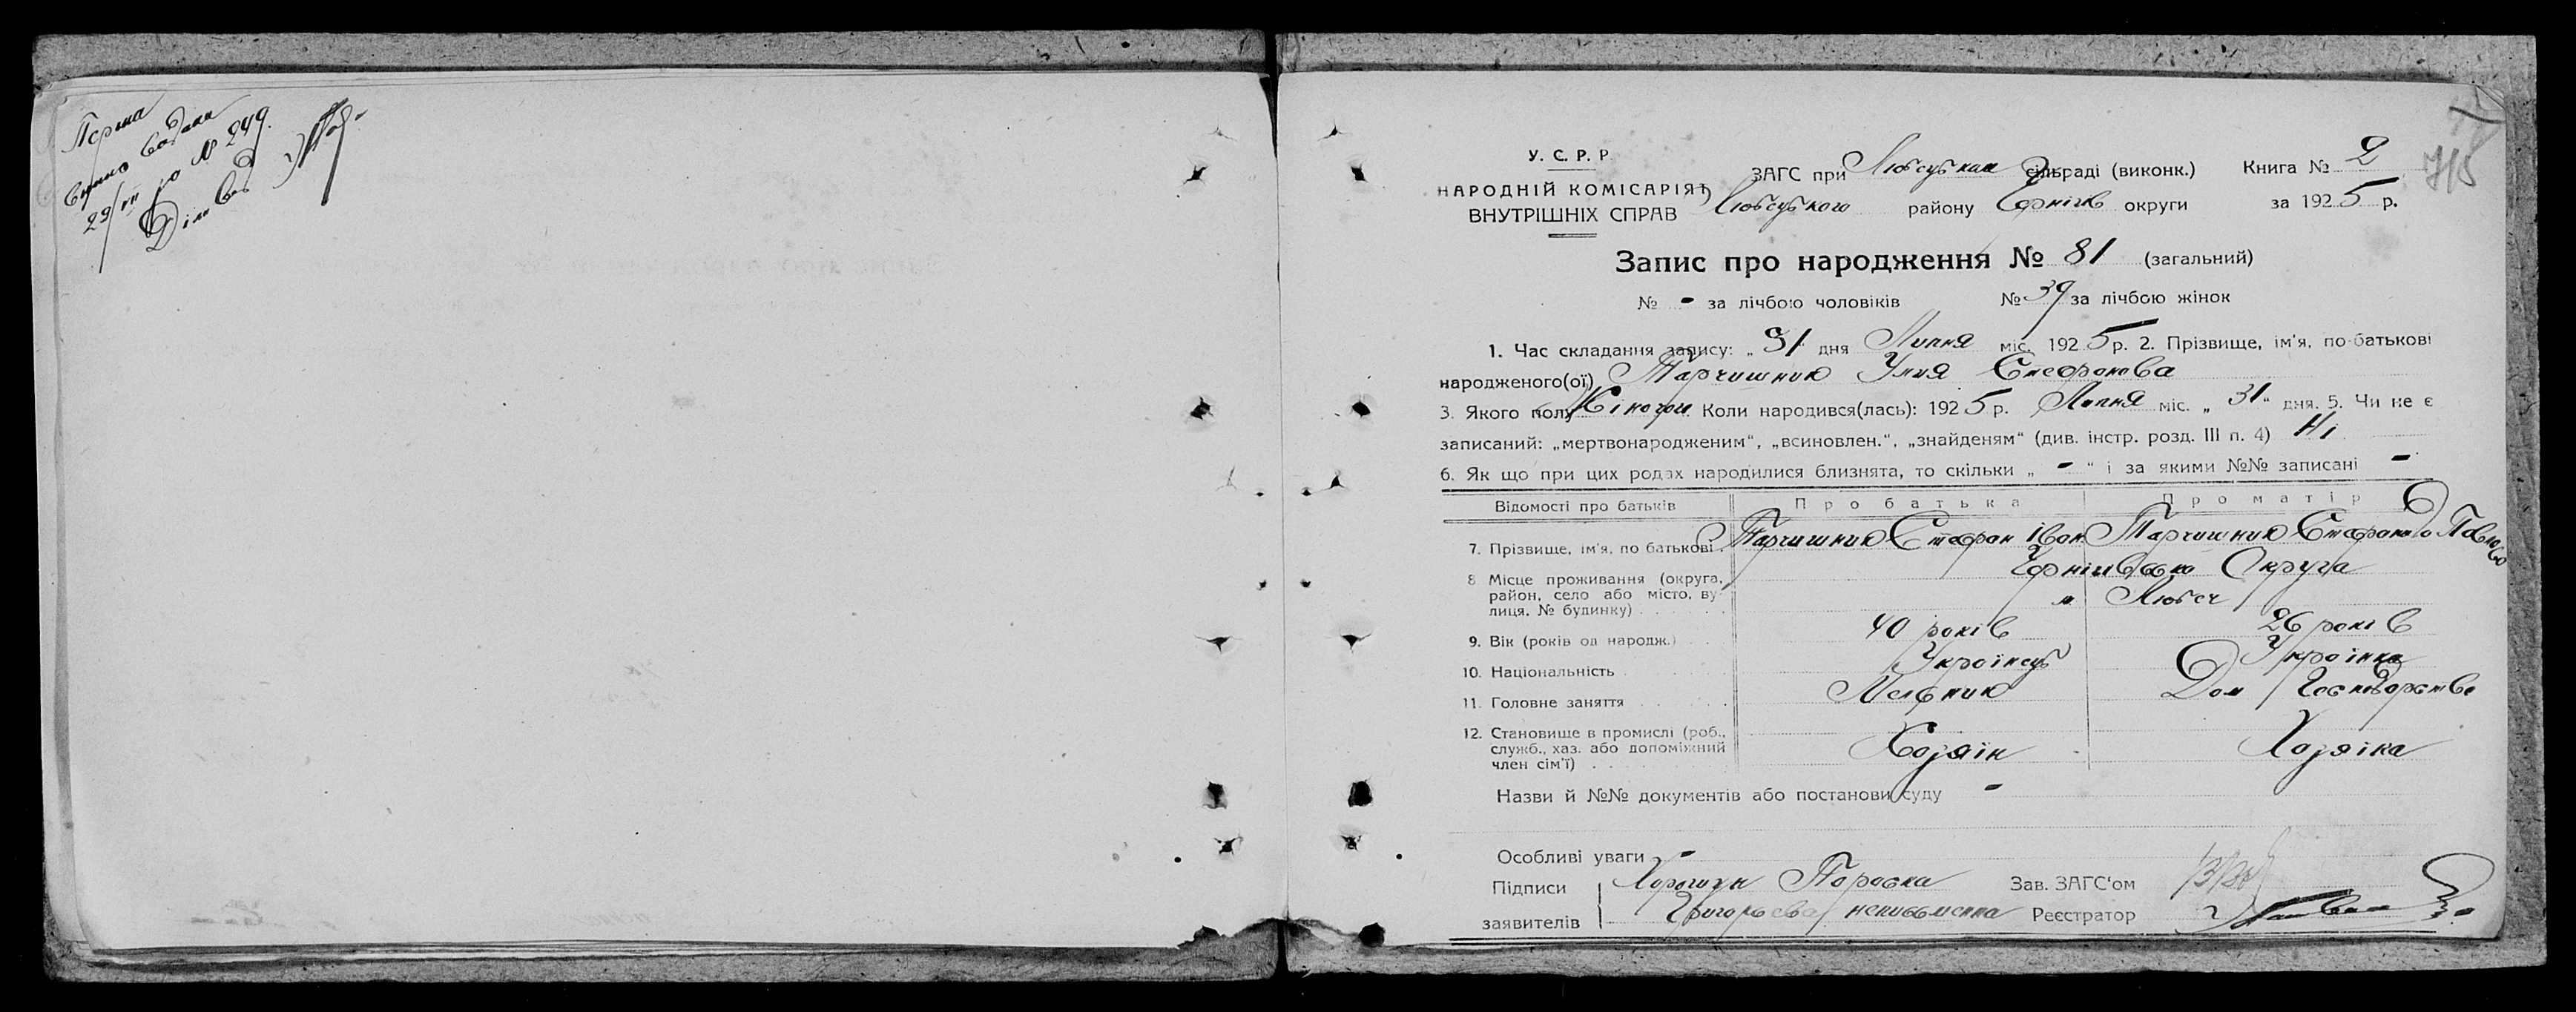 Перша
29/VII № 249
У. С. Р. Р.
НАРОДНІЙ КОМІСАРІЯТ
ВНУТРІШНІХ СПРАВ
ЗАГС при сільраді (виконк.) Книга № 2
Любецького району Черніг округи за 1925 р.
Запис про народження № 81 (загальний)
№ - за лічбою чоловіків № 39 за лічбою жінок
1. Час складання запису: „31“ дня Липня міс. 1925 р. 2. Прізвище, ім'я, по-батькові
народженого(ої) Тарчишник Улия Стефанова
3. Якого полу Жіночои Коли народився(лась): 1925 р. Липня міс. „31“ дня. 5. Чи не є
записаний: „мертвонародженим“, „всиновлен.“, „знайденям“ (див. інстр. розд. III п. 4) Ні
6. Як що при цих родах народилися близнята, то скільки „-“ і за якими №№ записані -
Відомості про батьків Про батька Про матір
7. Прізвище, ім'я, по батькові. Тарчишник Стефан Іван Тарчишник Павлово
8 Місце проживання (округа, район, село або місто, вулиця, № будинку) Чернігівсько Округа
м Любеч
9. Вік (років од народж.) 40 років 26 років
10. Національність Українець Українка
11. Головне заняття Мельник Дом Господарство
12. Становище в промислі (роб., служб., хаз. або допоміжний член сім'ї) Хозяїн Хозяіка
Назви й №№ документів або постанови суду -
Особливі уваги -
Підписи Параска Зав. ЗАГС'ом
заявителів Григорьева неписьменна Реєстратор